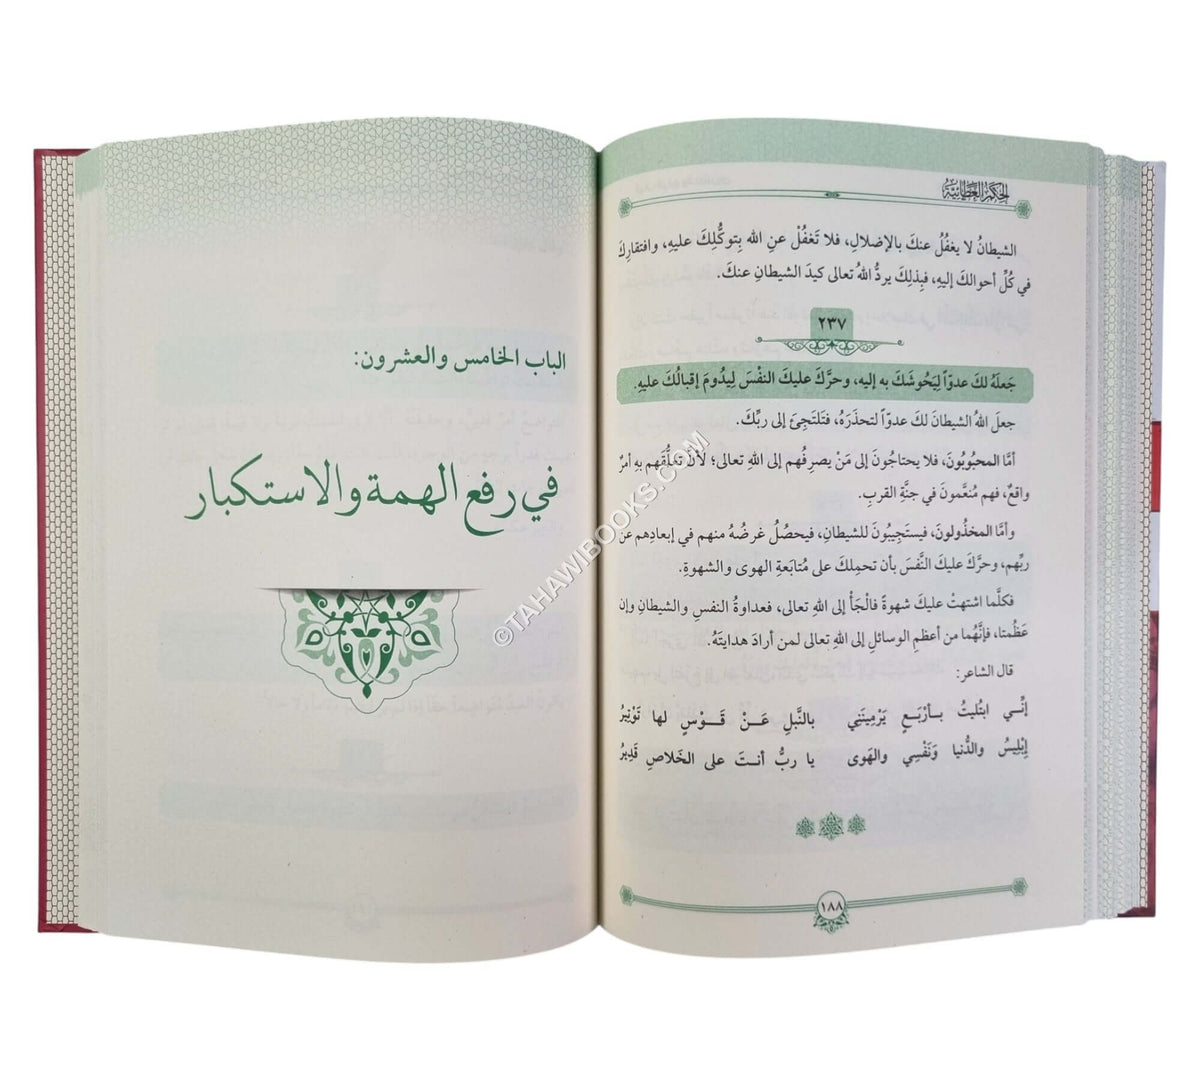 الحكم العطائية
الشيطانُ لا يغفُلُ عنكَ بالإضلالِ، فلا تَغفُلْ عنِ الله بِتوكُّلِكَ عليهِ، وافتقارِكَ
في كُلِّ أحوالكَ إليهِ، فبِذلِكَ يردُّ اللهُ تعالى كيدَ الشيطانِ عنكَ.
٢٣٧
جَعلَهُ لكَ عدوّاً لِيَحُوشَكَ به إليه، وحرَّكَ عليكَ النفْسَ لِيدُومَ إقبالُكَ عليهِ.
جعلَ اللهُ الشيطانَ لكَ عدوّاً لتحذَرَهُ، فتَلتَجِئَ إلى ربِّكَ.
أمَّا المحبُوبُونَ، فلا يحتاجُونَ إلى مَنْ يصرِفُهم إلى اللهِ تعالى؛ لأنَّ تعلُّقَهم بهِ أمرٌ
واقعٌ، فهم مُنعَّمونَ في جنَّةِ القربِ.
وأمَّا المخذُولونَ، فيستَجِيبُونَ للشيطانِ، فيحصُلُ غرضُهُ منهم في إبعادِهم عن
ربِّهم، وحرَّكَ عليكَ النَّفسَ بأن تحمِلكَ على مُتابَعةِ الهوى والشهوةِ.
فكلَّما اشتهتْ عليكَ شهوةً فالْجَأْ إلى اللهِ تعالى، فعداوةُ النفسِ والشيطانِ وإن
عَظُمتا، فإنَّهُما من أعظمِ الوسائلِ إلى اللهِ تعالى لمن أرادَ هدايتَهُ.
قال الشاعر:
إنِّي ابتُليتُ بـأرْبَـعٍ يَرْمِينَني بالنَّبلِ عَـنْ قَـوْسٍ لها تَوْتِيرُ
إبْلِيسُ والدُّنيا ونَفْسِي والهَوى يا ربُّ أنـتَ على الخَلاصِ قَدِيرُ
١٨٨
الباب الخامس والعشرون:
في رفع الهمة والاستكبار
©TAHAWIBOOKS.COM